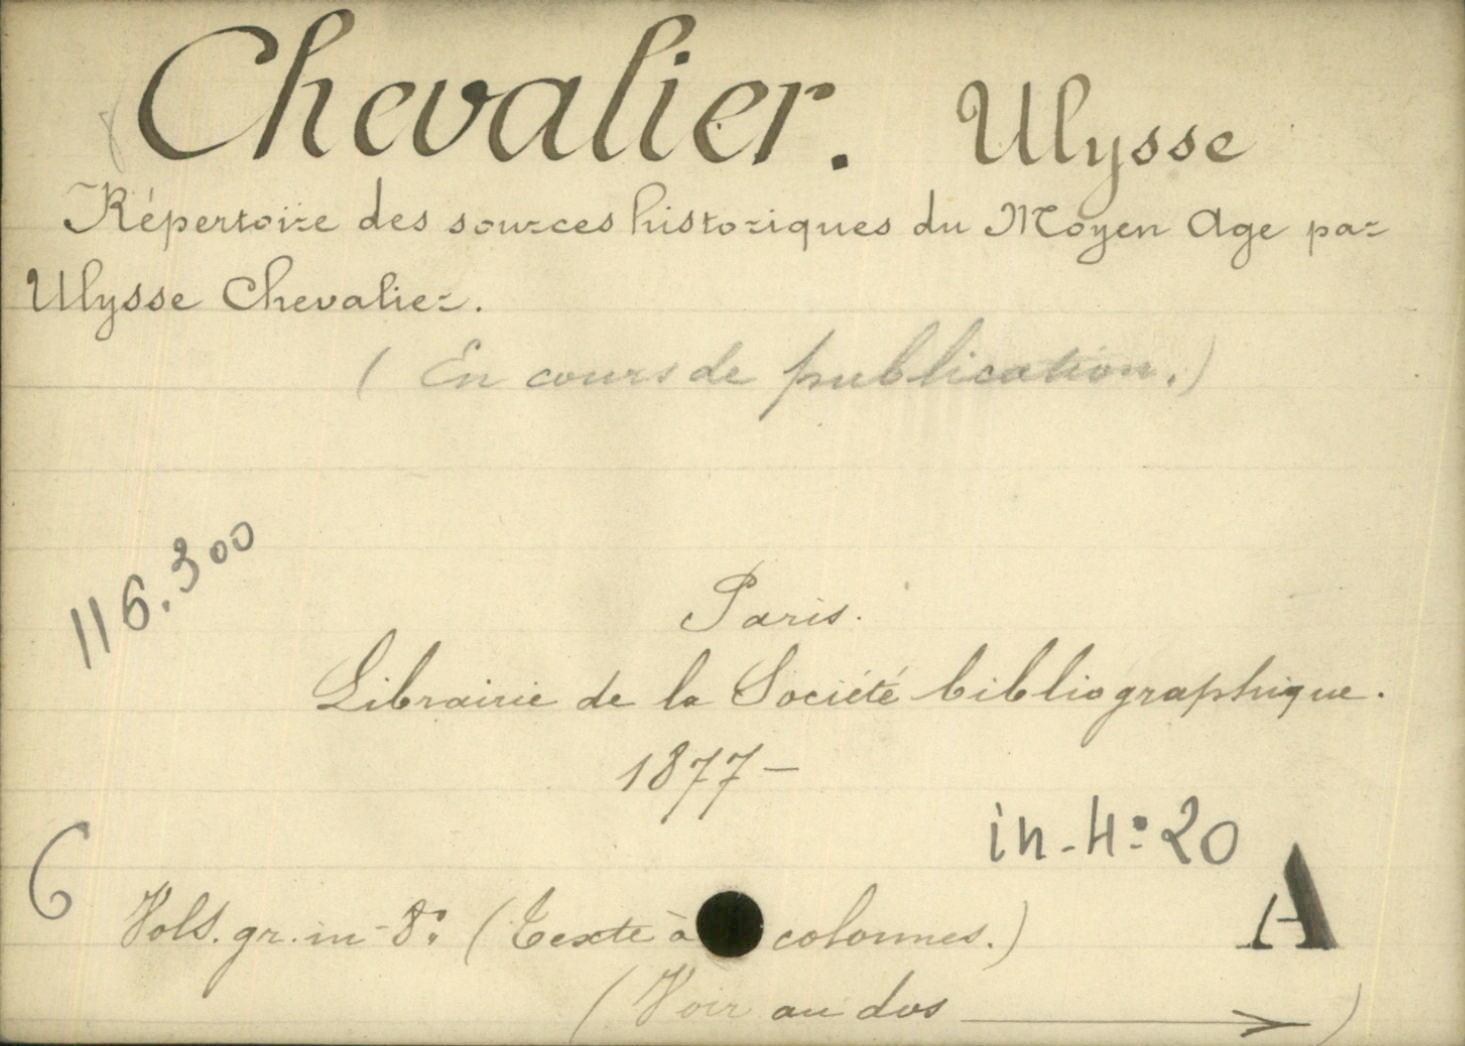 Chevalier. Ulysse
Répertoire des sources historiques du Moyen Age par
Ulysse Chevalier.
(En cours de publication.)
116.300
Paris.
Librairie de la Société bibliographique.
1877-
in-4º 20
6
A
Vols. gr. in-8º (Texte à colonnes.)
(Voir au dos )